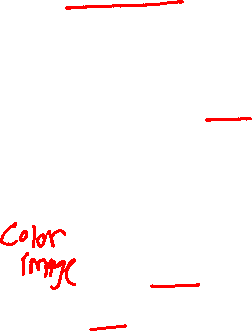 Color
Image